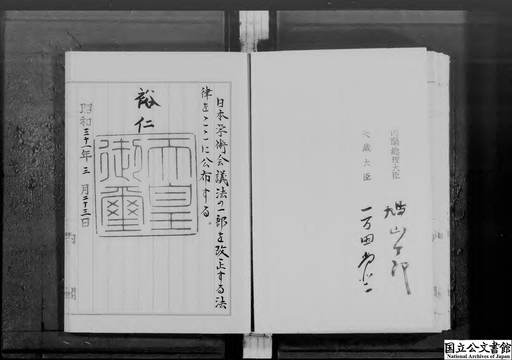 内閣総理大臣
鳩山一郎
大蔵大臣
一万田尚登
日本学術会議法の一部を改正する法
律をここに公布する。
裕仁
天皇
御璽
昭和三十一年三月二十三日
国立公文書館
National Archives of Japan